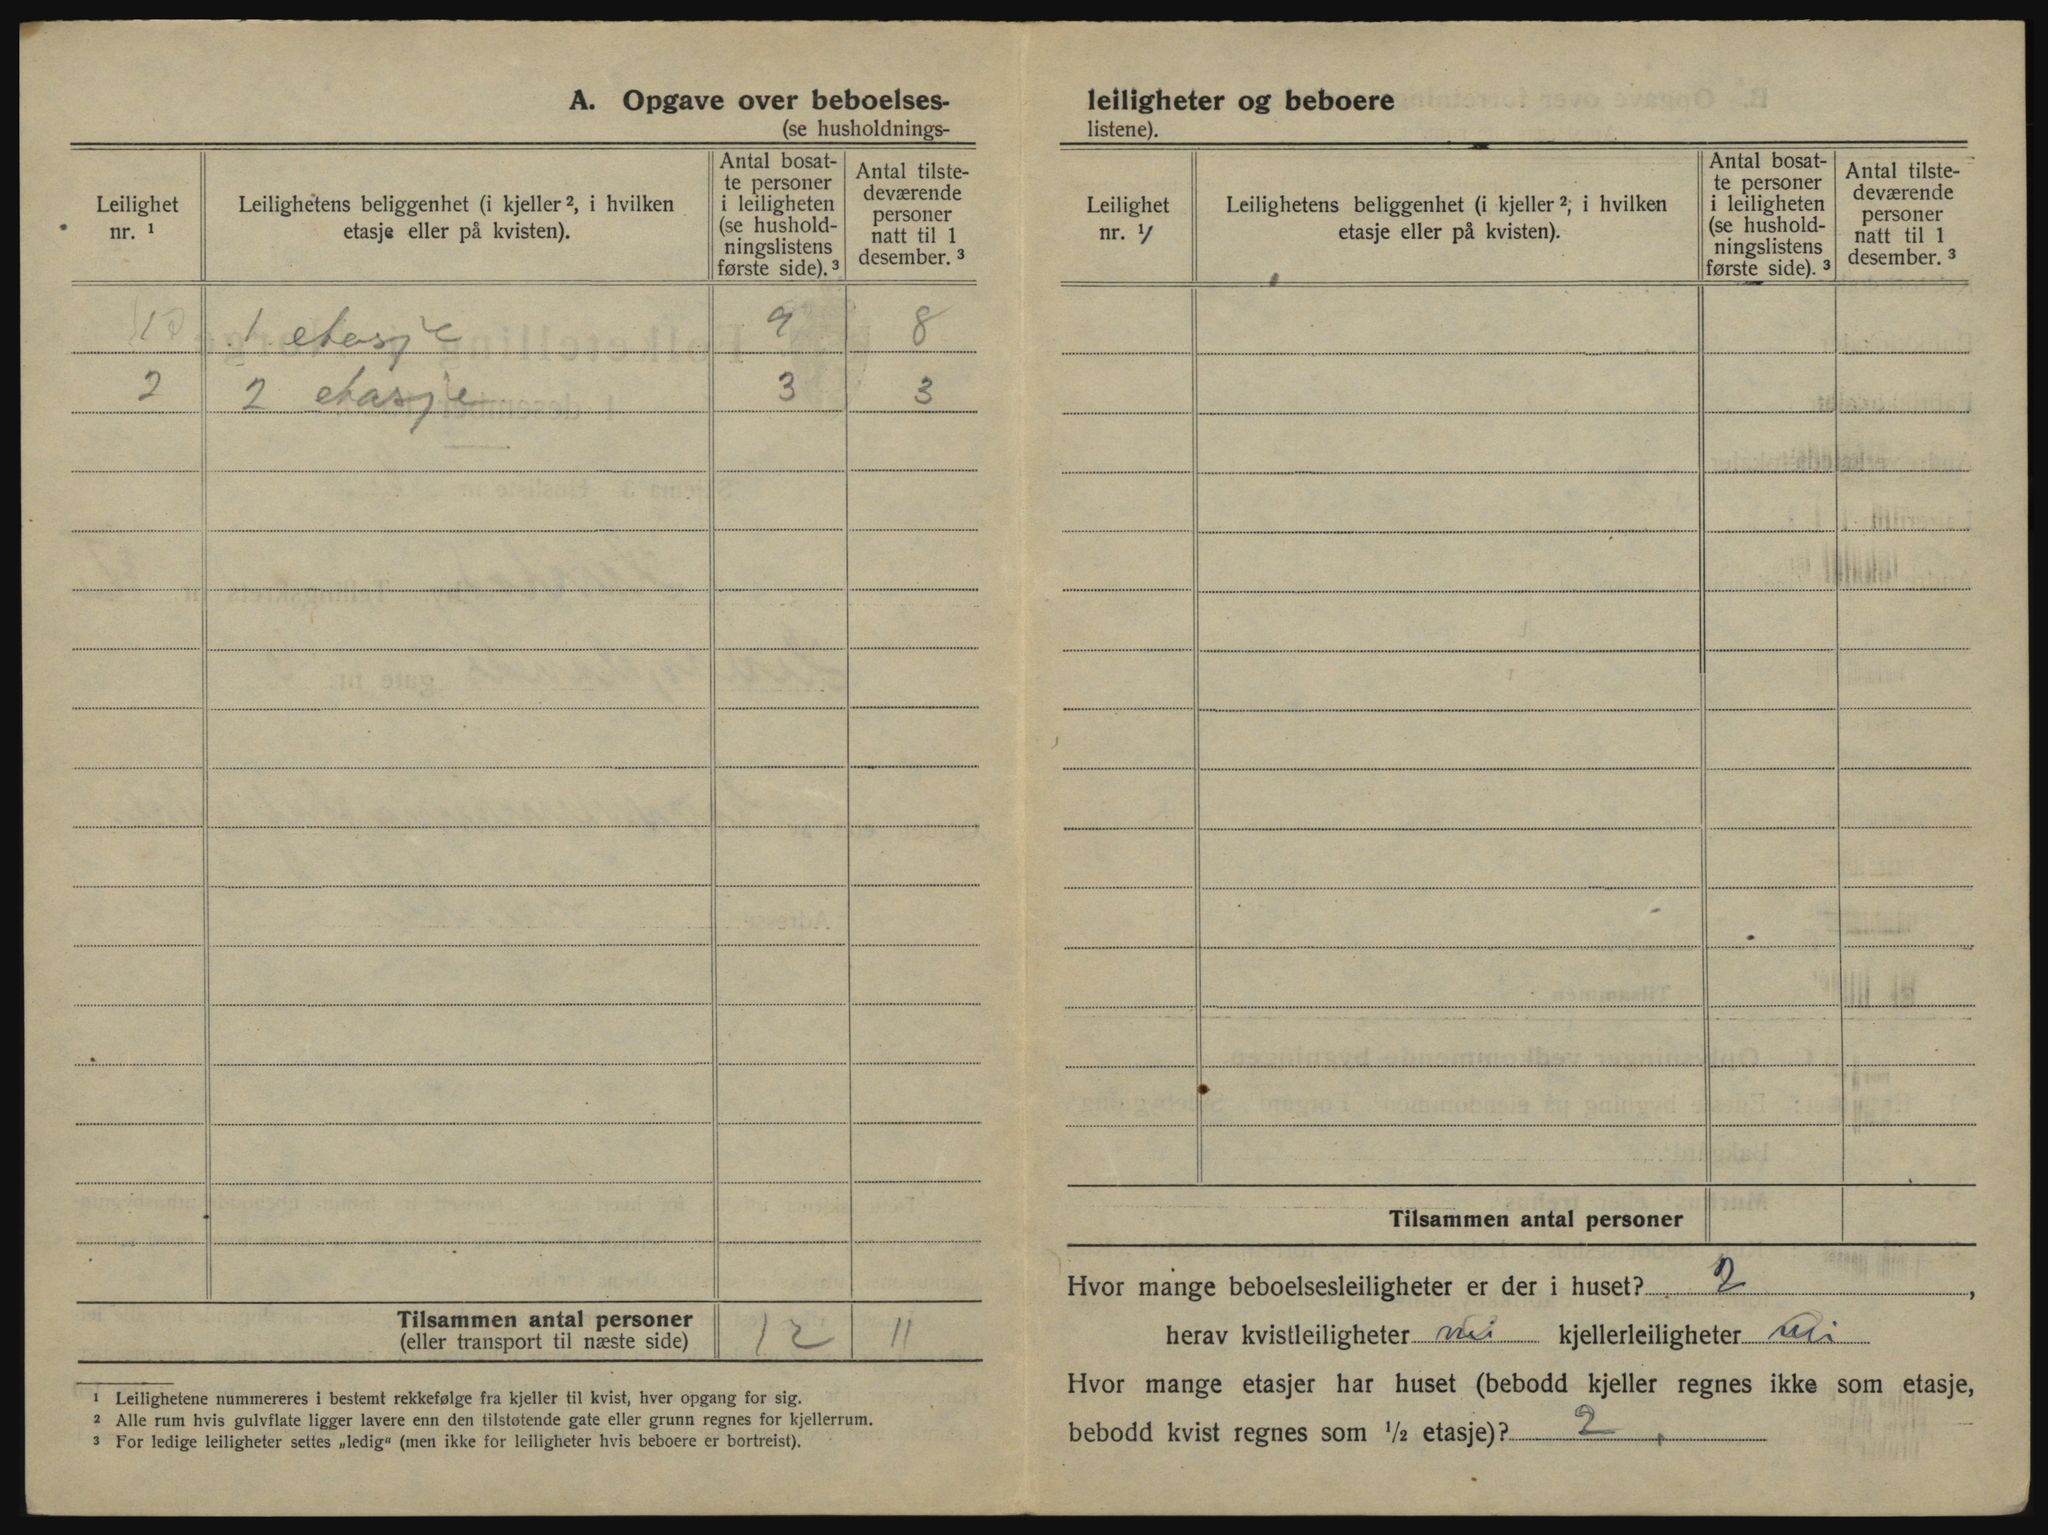 A. Opgave over beboelses-
(se husholdnings-
Leilighet
nr. ¹
Leilighetens beliggenhet (i kjeller ², i hvilken
etasje eller på kvisten).
Antal bosat-
te personer
i leiligheten
(se hushold-
ningslistens
første side). ³
Antal tilste-
deværende
personer
natt til 1
desember. ³
1 1 etasje 9 8
2 2 etasje 3 3
Tilsammen antal personer
(eller transport til næste side)
12 11
¹ Leilighetene nummereres i bestemt rekkefølge fra kjeller til kvist, hver opgang for sig.
² Alle rum hvis gulvflate ligger lavere enn den tilstøtende gate eller grunn regnes for kjellerrum.
³ For ledige leiligheter settes „ledig“ (men ikke for leiligheter hvis beboere er bortreist).
leiligheter og beboere
listene).
Leilighet
nr. ¹/
Leilighetens beliggenhet (i kjeller ², i hvilken
etasje eller på kvisten).
Antal bosat-
te personer
i leiligheten
(se hushold-
ningslistens
første side). ³
Antal tilste-
deværende
personer
natt til 1
desember. ³
Tilsammen antal personer
Hvor mange beboelsesleiligheter er der i huset? 2 ,
herav kvistleiligheter kjellerleiligheter
Hvor mange etasjer har huset (bebodd kjeller regnes ikke som etasje,
bebodd kvist regnes som ½ etasje)? 2